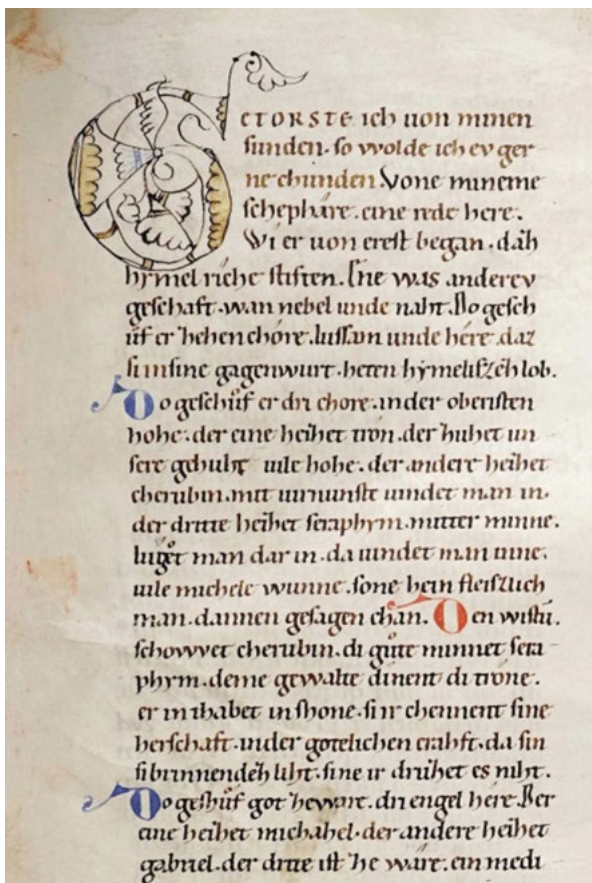 GETORSTE ich uon minen
sunden. so wolde ich ev ger
ne chunden. Vone mineme
schephâre. eine rede here.
Wi er uon erest began. dah
hymel riche stiften. Ene was anderev
geschaft. wan nebel unde naht. Do gesch
ůf er zehen chôre. lussam unde hêre. daz
si in sine gagenwurt. heten hymeliszeh lob.
Do geschůf er dri chore. in der oberisten
hohe. der eine heihet tron. der huhet un
sere gehuht uile hohe. der andere heihet
cherubin. mit uirnunste uindet man in.
der dritte heihet seraphym. mitter minne.
luget man dar in. da uindet man inne.
uile michele wunne. sone hein fleiszlich
man. dannen gesagen chan. Den wistů.
schowet cherubin. di gůte minnet sera
phym. deme gewalte dinent di trône.
er inthabet in shone. si ir chennent sine
herschaft. in der gotelichen crahft. da sin
si brinnendeh liht. sine ir druhet es niht.
Do geshůf got zeware. dri engel here. Der
eine heihet michahel. der andere heihet
gabriel. der dritte ist ze ware. ein medi